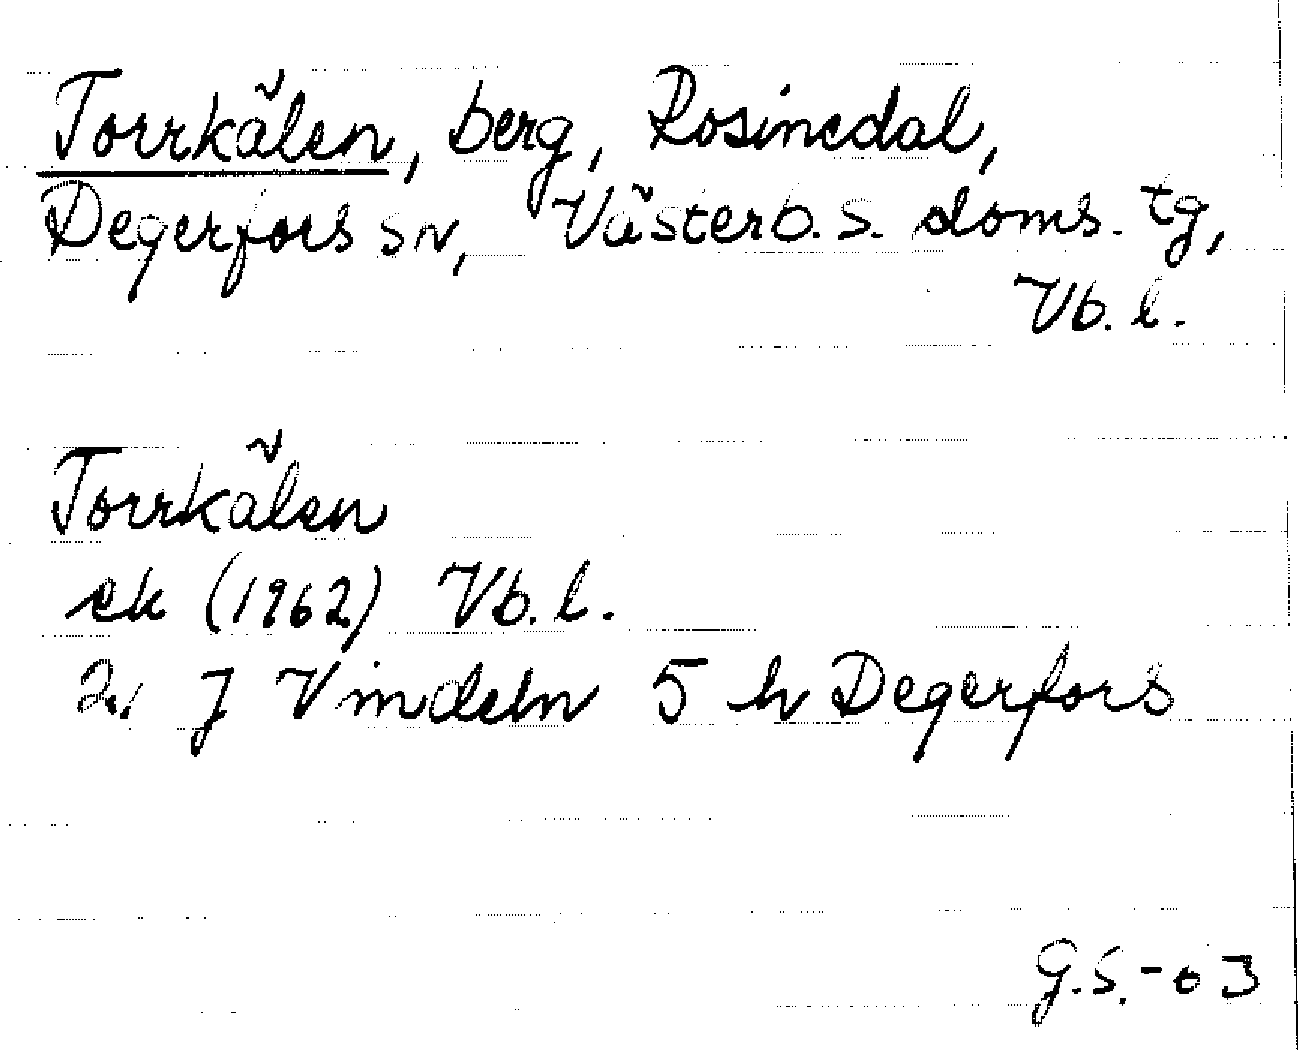 Torrkälen, berg, Rosinedal,
Degerfors sn, Västerb. s. doms. tg,
Vb. l.
Torrkälen
ek (1962) Vb. l.
21 J Vindeln 5 h Degerfors
G.S.-03